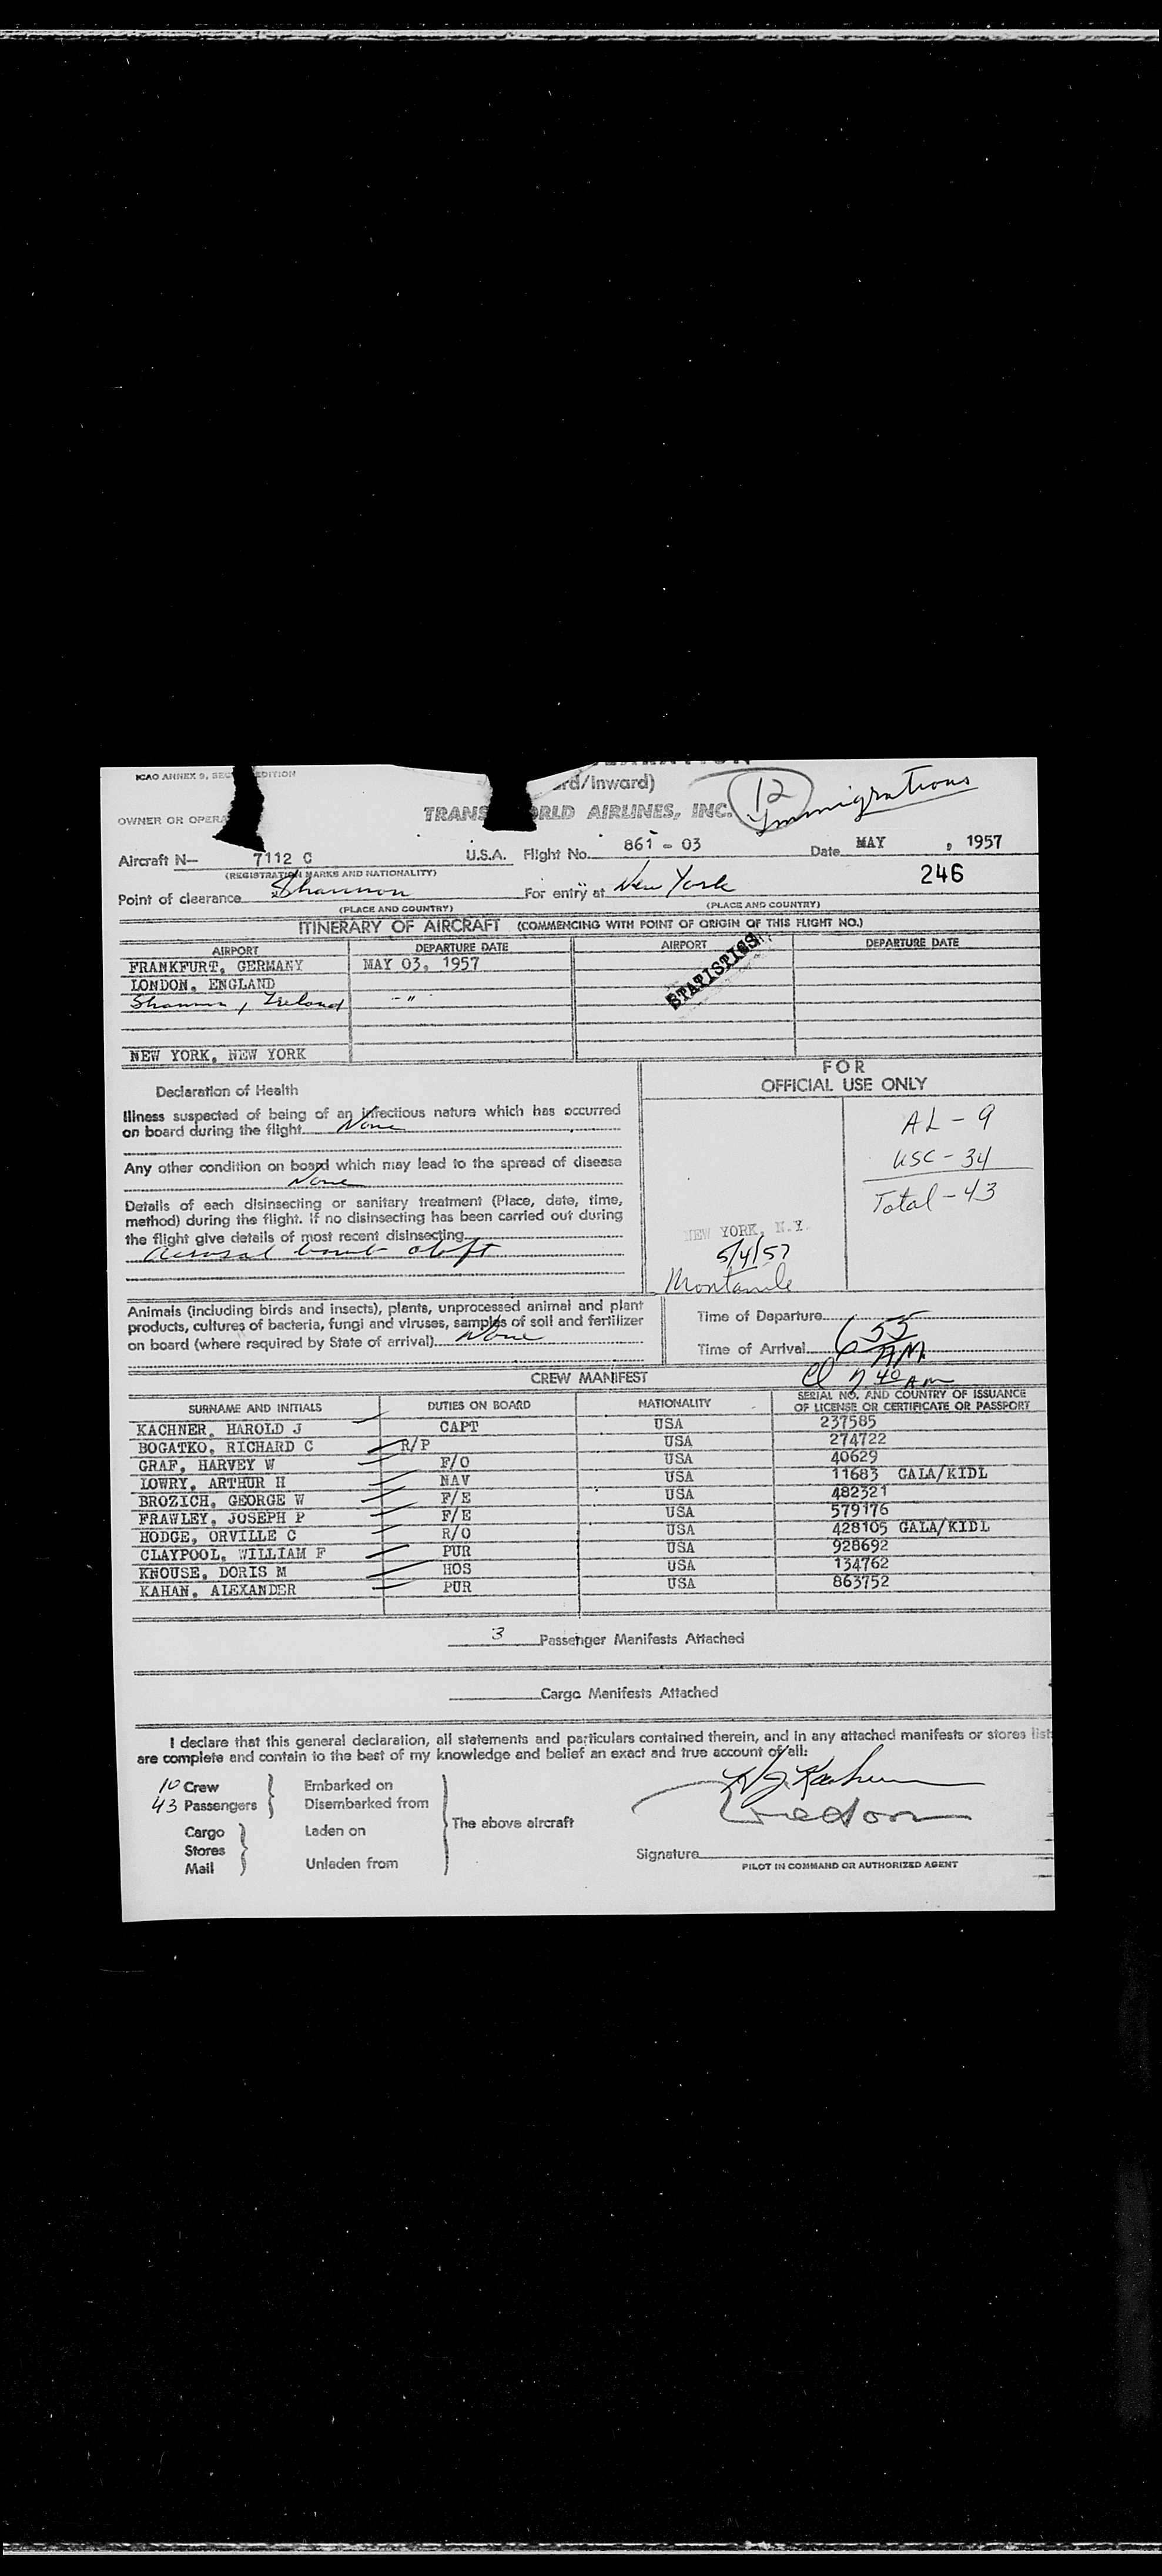 ICAO ANNEX 9, SEC EDITION
rd/Inward)
12
Immigrations
OWNER OR OPERA
TRANS ORLD AIRLINES, INC.
Aircraft N— 7112 C U.S.A. Flight No. 861 - 03 Date MAY , 1957
(REGISTRATION MARKS AND NATIONALITY)
246
Point of clearance Shannon For entry at New York
(PLACE AND COUNTRY) (PLACE AND COUNTRY)
ITINERARY OF AIRCRAFT (COMMENCING WITH POINT OF ORIGIN OF THIS FLIGHT NO.)
AIRPORT DEPARTURE DATE AIRPORT DEPARTURE DATE
FRANKFURT, GERMANY MAY 03, 1957
STATISTICS
LONDON, ENGLAND
Shannon, Ireland - "
NEW YORK, NEW YORK
FOR
OFFICIAL USE ONLY
Declaration of Health
Illness suspected of being of an infectious nature which has occurred
on board during the flight None
Any other condition on board which may lead to the spread of disease
None
Details of each disinsecting or sanitary treatment (Place, date, time,
method) during the flight. If no disinsecting has been carried out during
the flight give details of most recent disinsecting
Aerosal bomb aloft
AL - 9
USC - 34
Total - 43
NEW YORK, N.Y.
5/4/57
Animals (including birds and insects), plants, unprocessed animal and plant
products, cultures of bacteria, fungi and viruses, samples of soil and fertilizer
on board (where required by State of arrival) None
Time of Departure
Time of Arrival 6 55 AM
7 40 AM
CREW MANIFEST
SURNAME AND INITIALS DUTIES ON BOARD NATIONALITY SERIAL NO. AND COUNTRY OF ISSUANCE
OF LICENSE OR CERTIFICATE OR PASSPORT
KACHNER, HAROLD J CAPT USA 237585
BOGATKO, RICHARD C R/P USA 274722
GRAF, HARVEY W F/O USA 40629
LOWRY, ARTHUR H NAV USA 11683 GALA/KIDL
BROZICH, GEORGE W F/E USA 482321
FRAWLEY, JOSEPH P F/E USA 579176
HODGE, ORVILLE C R/O USA 428105 GALA/KIDL
CLAYPOOL, WILLIAM F PUR USA 928692
KNOUSE, DORIS M HOS USA 134762
KAHAN, ALEXANDER PUR USA 863752
3 Passenger Manifests Attached
Cargo Manifests Attached
I declare that this general declaration, all statements and particulars contained therein, and in any attached manifests or stores list
are complete and contain to the best of my knowledge and belief an exact and true account of all:
10 Crew Embarked on
43 Passengers Disembarked from
The above aircraft
Cargo Laden on
Stores
Mail Unladen from
Signature
PILOT IN COMMAND OR AUTHORIZED AGENT